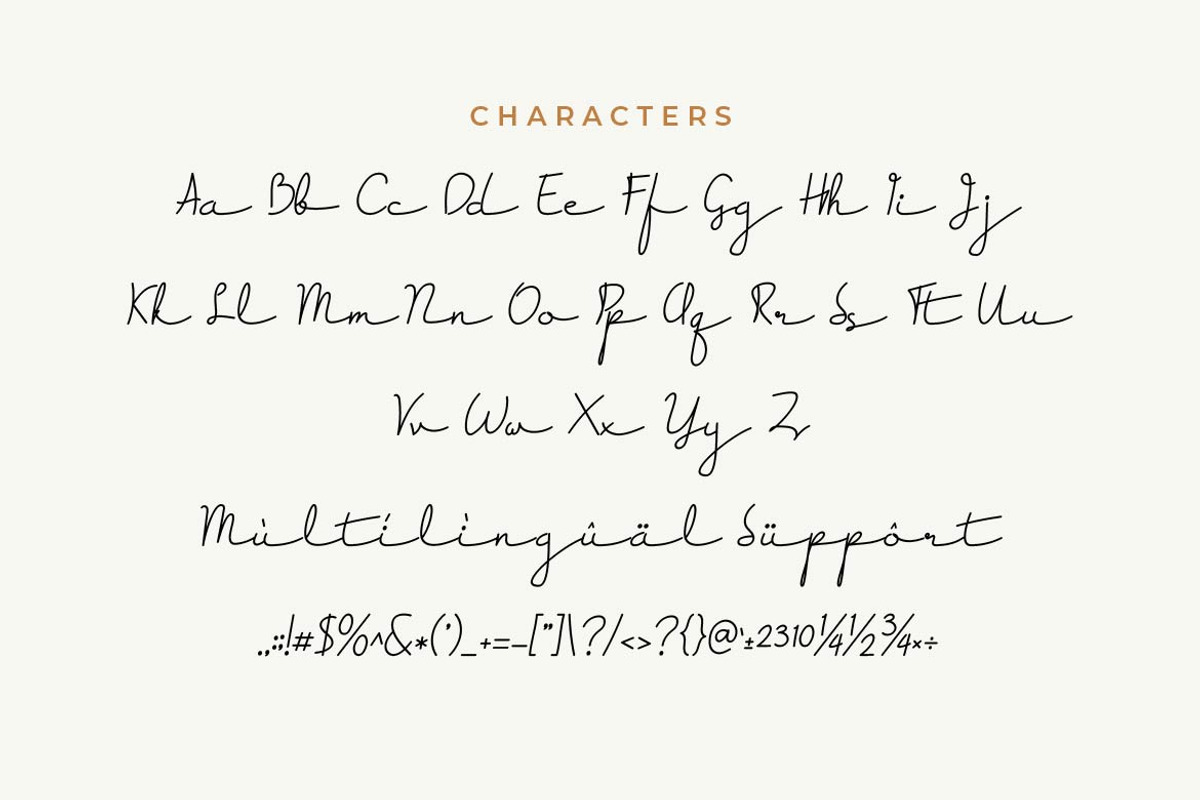 CHARACTERS
Aa Bb Cc Dd Ee Ff Gg Hh Ii Jj
Kk Ll Mm Nn Oo Pp Qq Rr Ss Tt Uu
Vv Ww Xx Yy Zz
Mùltílìngûäl Süppôrt
.,:;!#$%^&*(')_+=-["]\?/<>?{}@'±2310¼½¾×÷